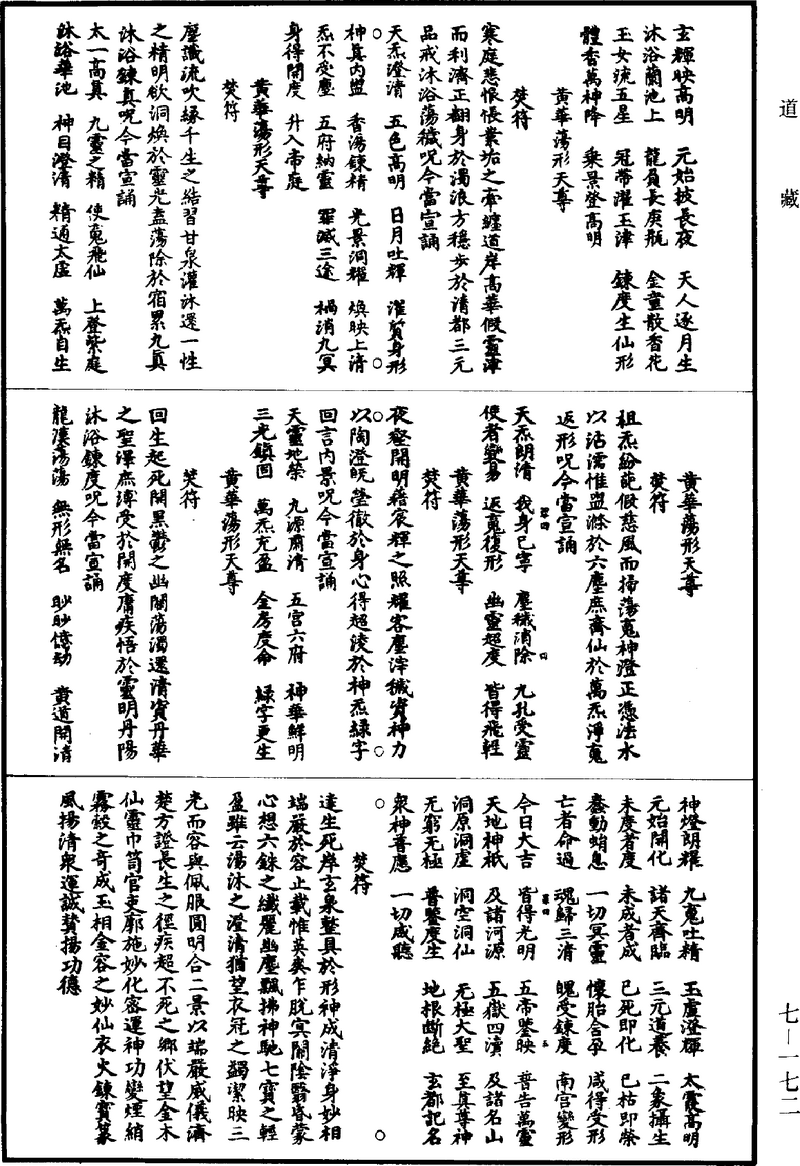 道藏
七—一七二
玄輝映高明　元始披長夜　天人逐月生
沐浴蘭池上　龍負長庚瓶　金童散香花
玉女㳅五星　冠帶濯玉津　鍊度生仙形
體香萬神降　乘景登高明
黃華蕩形天尊
焚符
寒庭悲恨悵業垢之牽纏道岸高華假靈津
而利濟正翻身於濁浪方穩步於清都三元
品戒沐浴蕩穢呪今當宣誦
天炁澄清　五色高明　日月吐輝　濯質身形
神真內盥　香湯鍊精　光景洞耀　煥映上清
炁不受塵　五府納靈　罪滅三途　禍消九冥
身得開度　升入帝庭
黃華蕩形天尊
焚符
塵識流吹緣千生之結習甘泉灌沐還一性
之精明欲洞煥於靈光盍蕩除於宿累九真
沐浴鍊真呪今當宣誦
太一高真　九靈之精　使䰟飛仙　上登紫庭
沐浴華池　神目澄清　精通太虛　萬炁自生
黃華蕩形天尊
焚符
祖炁紛葩假慈風而掃蕩䰟神澄正憑法水
以沾濡惟盥滌於六塵庶齊仙於萬炁淨䰟
返形呪今當宣誦
天炁朗清　我身已寧　塵穢消除　九孔受靈
使者變易　返䰟復形　幽靈超度　皆得飛輕
黃華蕩形天尊
焚符
夜壑開明藉宸輝之照耀客塵滓穢資神力
以陶澄旣瑩徹於身心得超淩於神炁綠字
回言內景呪今當宣誦
天靈地榮　九源肅清　五宮六府　神華鮮明
三光鎮回　萬炁充盈　金房度命　綠字更生
黃華蕩形天尊
焚符
回生起死開黑鬱之幽關蕩濁還清資丹華
之聖澤庶溥受於開度膺疾悟於靈明丹陽
沐浴鍊度呪今當宣誦
龍漢蕩蕩　無形無名　眇眇億劫　黃道開清
神燈朗耀　九䰟吐精　玉虛澄輝　太霞高明
元始開化　諸天齊臨　三元道養　二象攝生
未度者度　未成者成　已死即化　已枯即榮
蠢動蛸息　一切冥靈　懷胎含孕　咸得受形
亡者命過　魂歸三清　魄受鍊度　南宮變形
今日大吉　皆得光明　五帝鑒映　普告萬靈
天地神祇　及諸河源　五嶽四瀆　及諸名山
洞原洞虛　洞空洞仙　無極大聖　至真尊神
无窮无極　普鑒度生　地根斷絕　玄都記名
衆神普應　一切咸聽
焚符
達生死岸玄泉整具於形神成清淨身妙相
端嚴於容止載惟英爽乍脫冥關陰翳昏蒙
心想六銖之纖麗幽塵飄拂神馳七寶之輕
盈雖云湯沐之澄清猶望衣冠之蠲潔映三
光而容與佩服圓明合二景以端嚴威儀濟
楚方證長生之徑疾超不死之鄉伏望金木
仙靈巾笥官吏廓施妙化密運神功變煙綃
霧縠之奇成玉相金容之妙仙衣火鍊寶篆
風揚清衆運誠贊揚功德